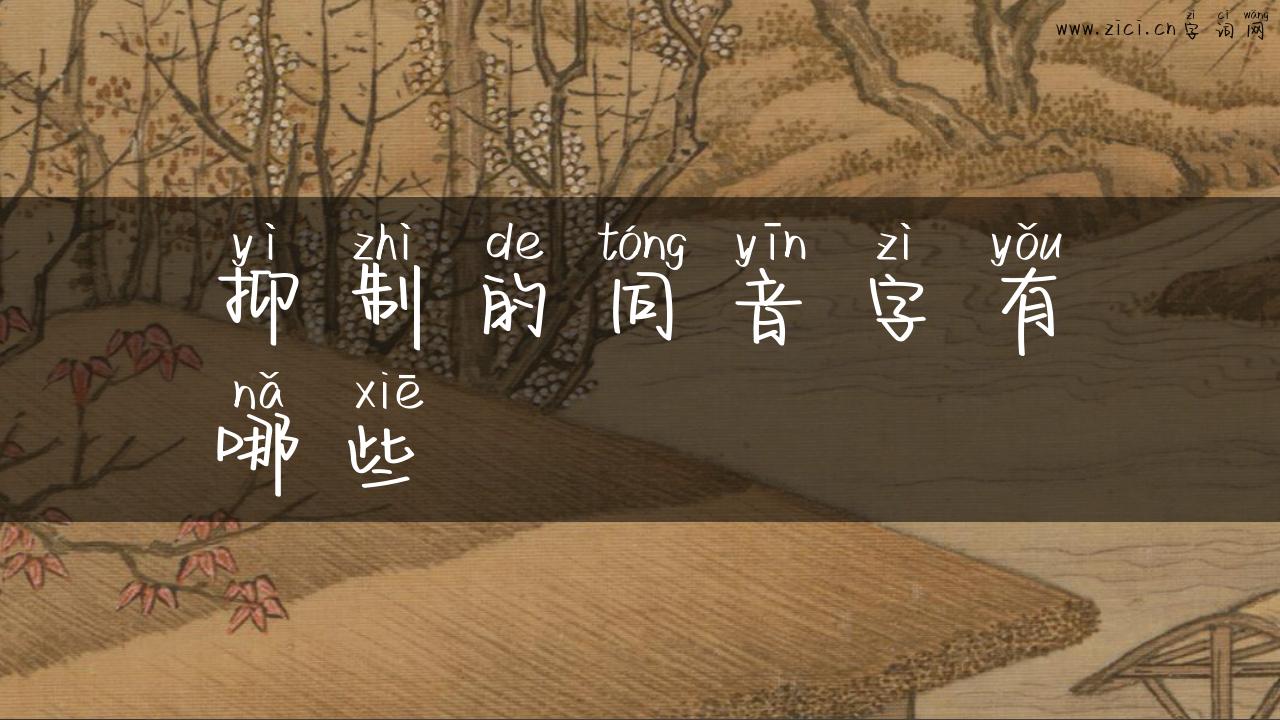 zì cí wǎng
www.zici.cn字词网
yì zhì de tóng yīn zì yǒu
抑制的同音字有
nǎ xiē
哪些